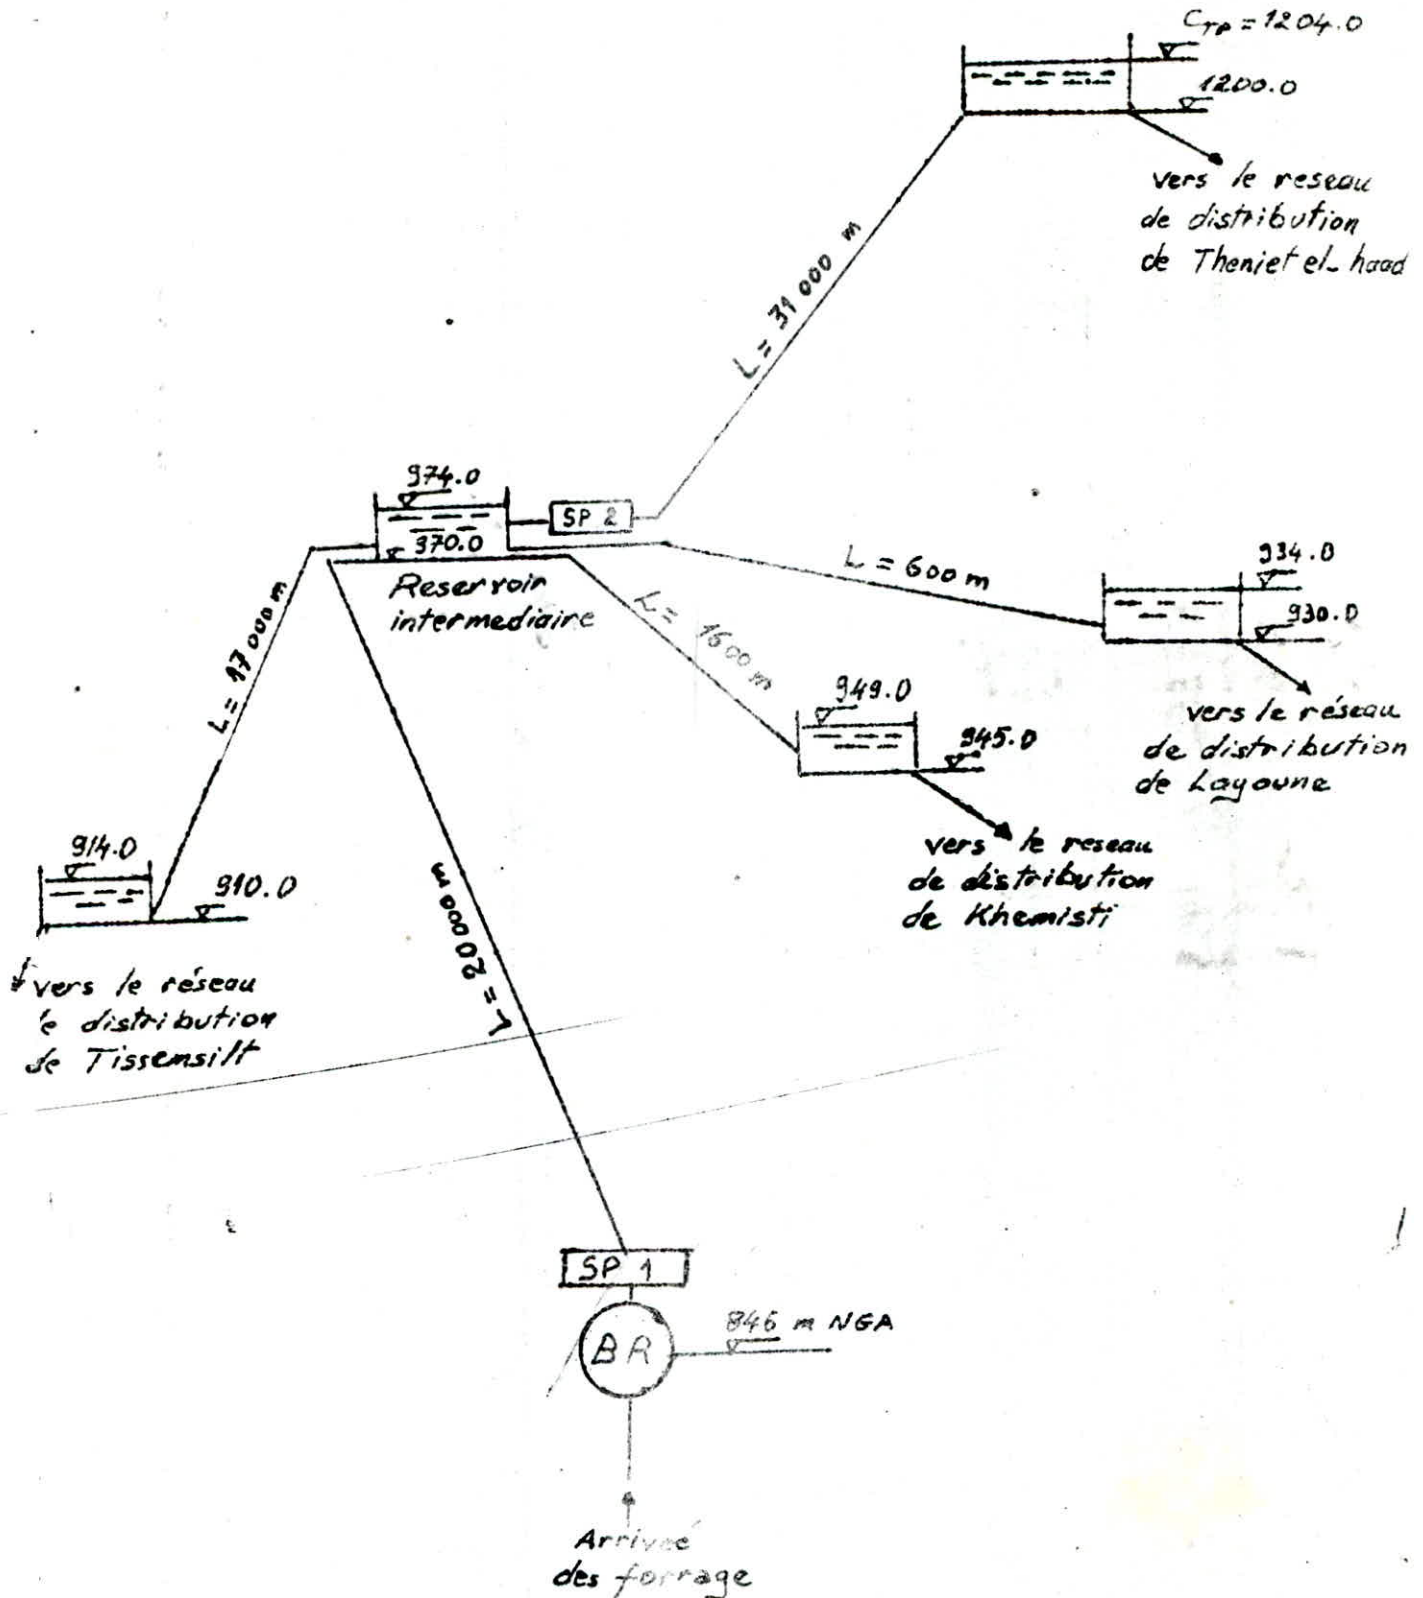 CTP = 1204.0
1200.0
vers le reseau
de distribution
de Theniet el-haad
L = 31 000 m
974.0
SP 2
370.0
Reservoir
intermediaire
L = 600 m
934.0
930.0
vers le réseau
de distribution
de Layoune
L = 17 000 m
L = 1600 m
949.0
945.0
vers le reseau
de distribution
de Khemisti
914.0
910.0
vers le réseau
de distribution
de Tissemsilt
L = 20 000 m
SP 1
BR
846 m NGA
Arriveé
des forrage